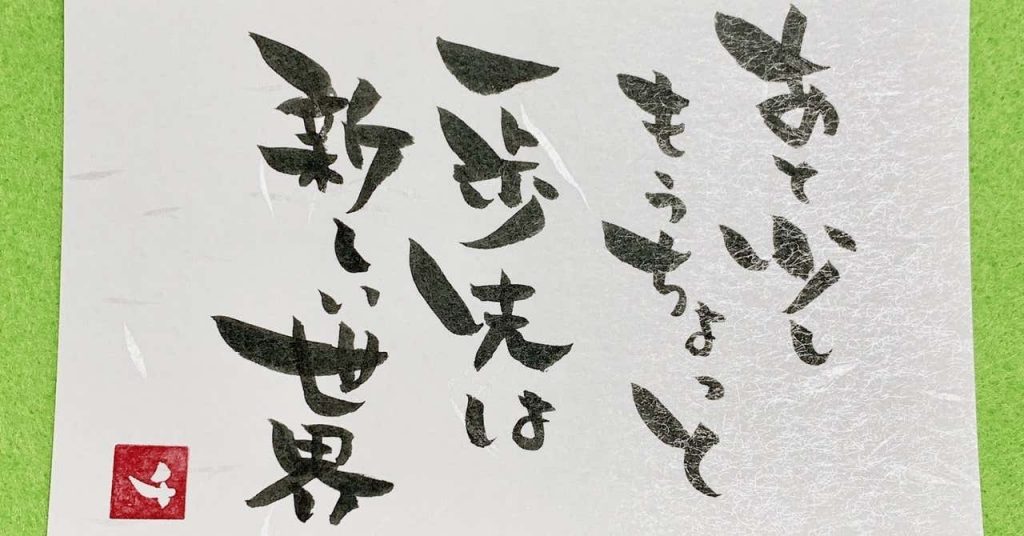 あと少し
もうちょっと
一歩先は
新しい世界